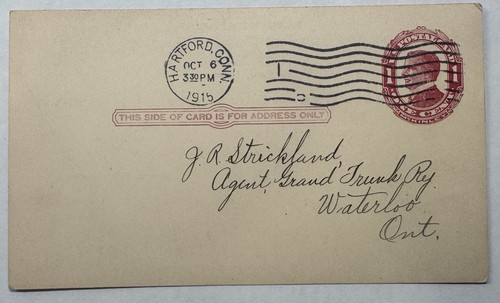 HARTFORD, CONN.
OCT 6
330 PM
1915
1
THIS SIDE OF CARD IS FOR ADDRESS ONLY
J. R. Strickland
Agent, Grand Trunk Ry.
Waterloo
Ont.